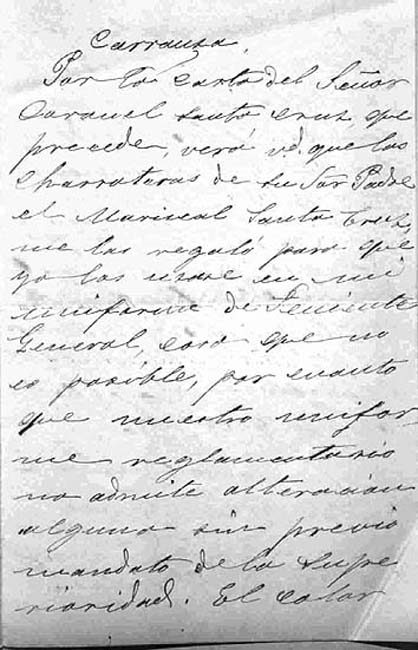 Carranza.
Por la carta del Señor
Coronel Santa Cruz, que
precede, verá vd. que las
charrateras de su Sor Padre
el Mariscal Santa Cruz,
me las regaló para que
yo las usase en mi
uniforme de Teniente
General, cosa que no
es posible, por cuanto
que nuestro unifor-
me reglamentario
no admite alteración
alguna sin previo
mandato de la Supe
rioridad. El color